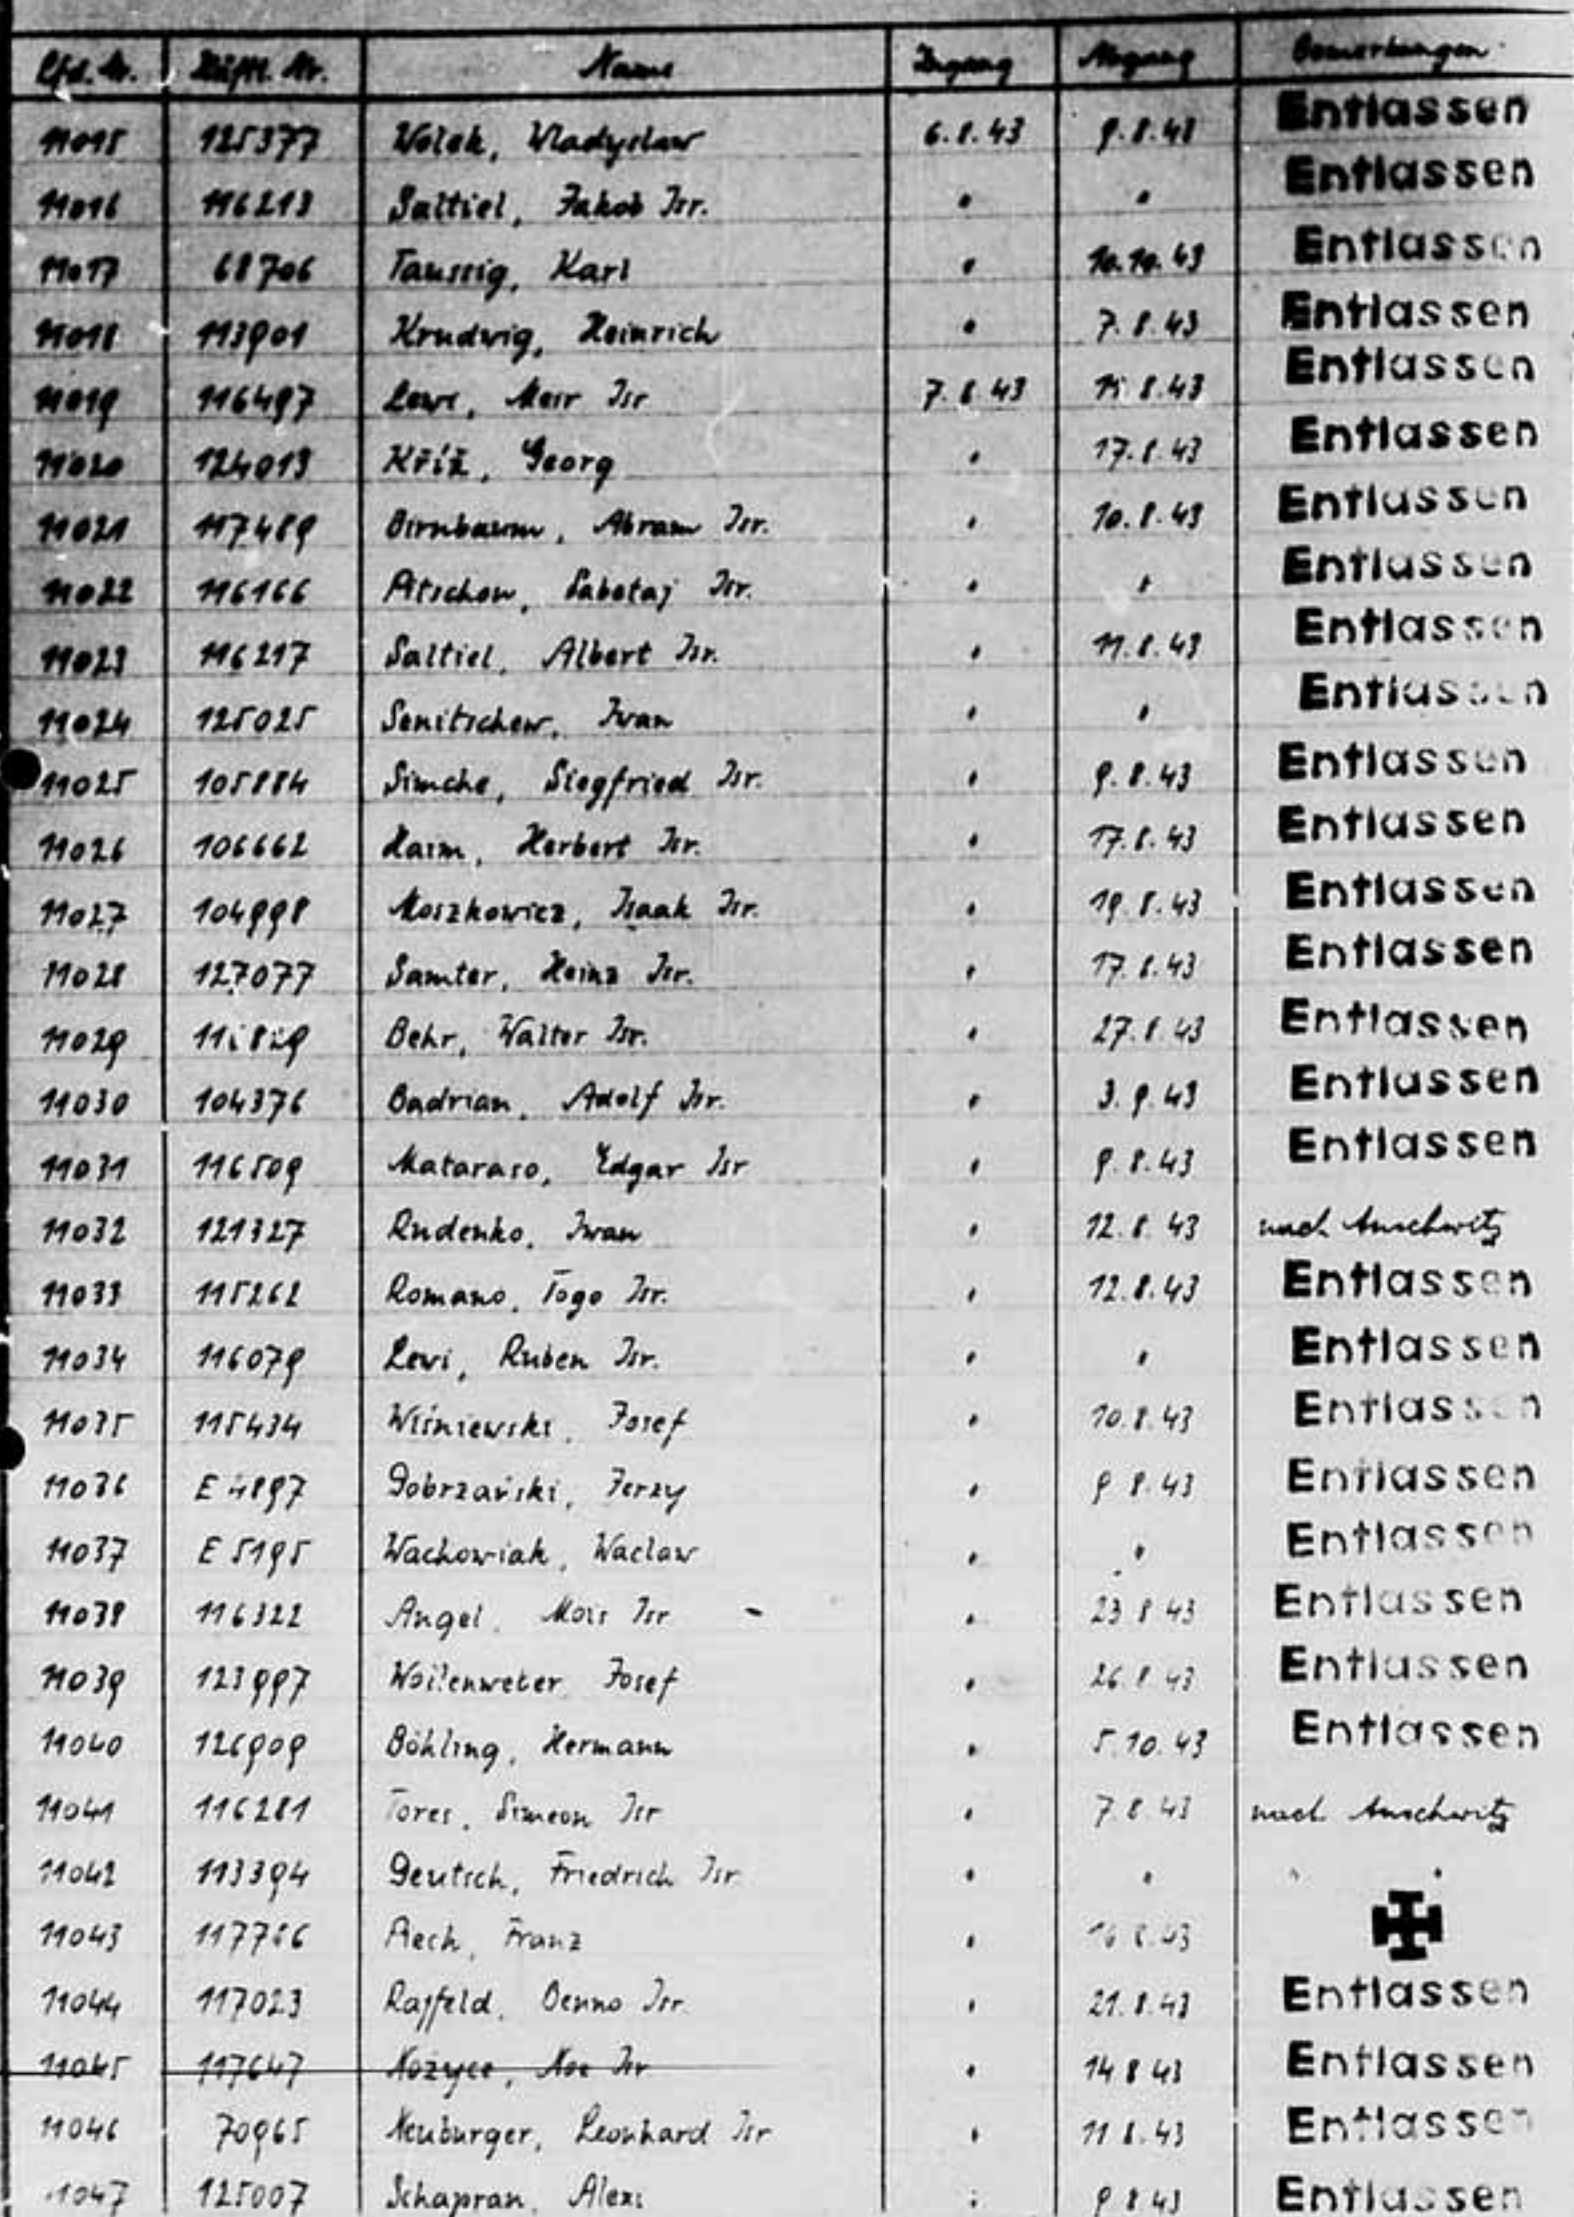 Lfd. Nr. Häftl. Nr. Name Zugang Abgang Bemerkungen
11015 125377 Wolak, Wladyslaw 6.8.43 9.8.43 Entlassen
11016 116213 Saltiel, Jakob Isr. " " Entlassen
11017 68706 Taussig, Karl " 10.10.43 Entlassen
11018 113901 Krudwig, Heinrich " 7.8.43 Entlassen
11019 116497 Lewi, Meir Isr 7.8.43 11.8.43 Entlassen
11020 124013 Kříž, Georg " 17.8.43 Entlassen
11021 117489 Birnbaum, Abram Isr. " 10.8.43 Entlassen
11022 116166 Pitschon, Sabetaj Isr. " " Entlassen
11023 116217 Saltiel, Albert Isr. " 11.8.43 Entlassen
11024 125025 Senitschew, Iwan " " Entlassen
11025 105884 Simche, Siegfried Isr. " 9.8.43 Entlassen
11026 106662 Haim, Herbert Isr. " 17.8.43 Entlassen
11027 104998 Moszkowicz, Isaak Isr. " 19.8.43 Entlassen
11028 127077 Samter, Heinz Isr. " 17.8.43 Entlassen
11029 Behr, Walter Isr. " 27.8.43 Entlassen
11030 104376 Badrian, Adolf Isr. " 3.9.43 Entlassen
11031 116509 Mataraso, Edgar Isr " 9.8.43 Entlassen
11032 121327 Rudenko, Iwan " 12.8.43 nach Auschwitz
11033 115262 Romano, Togo Isr. " 12.8.43 Entlassen
11034 116079 Lewi, Ruben Isr. " " Entlassen
11035 115434 Wiśniewski, Josef " 10.8.43 Entlassen
11036 E 4897 Dobrzański, Jerzy " 9 8.43 Entlassen
11037 E 5195 Wachowiak, Waclaw " " Entlassen
11038 116322 Angel, Mois Isr " 23 8 43 Entlassen
11039 123997 Wollenweber Josef " 26.8.43 Entlassen
11040 126909 Böhling, Hermann " 5.10.43 Entlassen
11041 116281 Tores, Simeon Isr " 7.8.43 nach Auschwitz
11042 113394 Deutsch, Friedrich Isr " " " "
11043 Pech, Franz " 16 8.43
11044 117023 Rajfeld, Benno Isr. " 21.8.43 Entlassen
11045 117647 Nozyce, Noe Isr " 14 8 43 Entlassen
11046 70965 Neuburger, Leonhard Isr " 11 8.43 Entlassen
11047 125007 Schapran, Alexi " 9 8 43 Entlassen